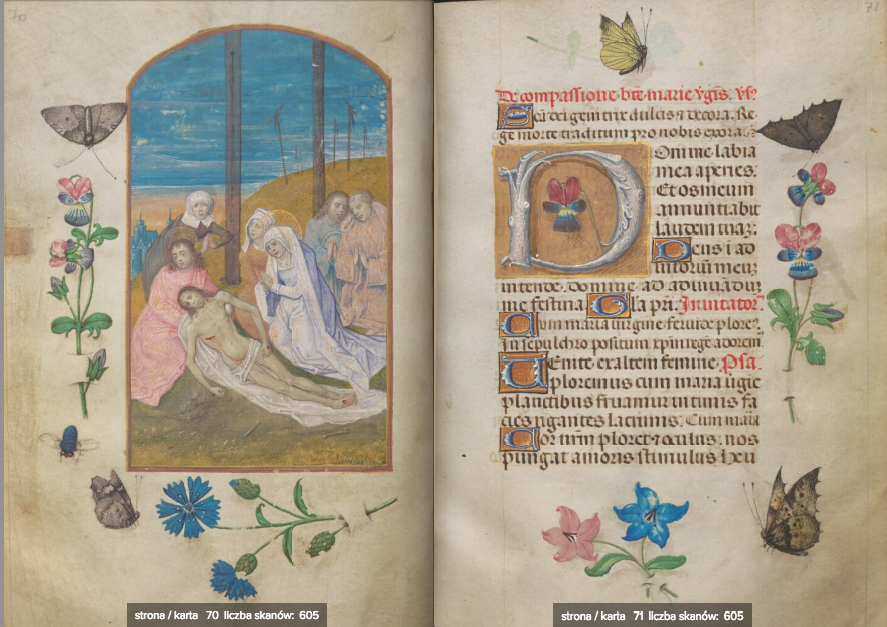 70
71
De compassione bte marie v̄gis. vs̄
Sc̄a dei genitrix dulcis ⁊ decora. Re
ge morte traditum pro nobis exora.
Omine labia
mea aperies:
Et os meum
annuntiabit
laudem tuaz.
Deus i ad
intoriū meuz
intende. domine ad adiuuādum
me festina. Gl̄a pr̄i. Inuitator̄
Cum maria uirgine feruide plore
In sepulchro positum xp̄m regē adorem
Uenite exaltem femine. Psa.
ploremus cum maria
planctibus fruamur intimis fa
cies rigantes lacrimis. Cum maria
Cor nr̄m ploret ⁊ oculus. nos
pungat amoris stimulus
strona / karta 70 liczba skanów: 605
strona / karta 71 liczba skanów: 605